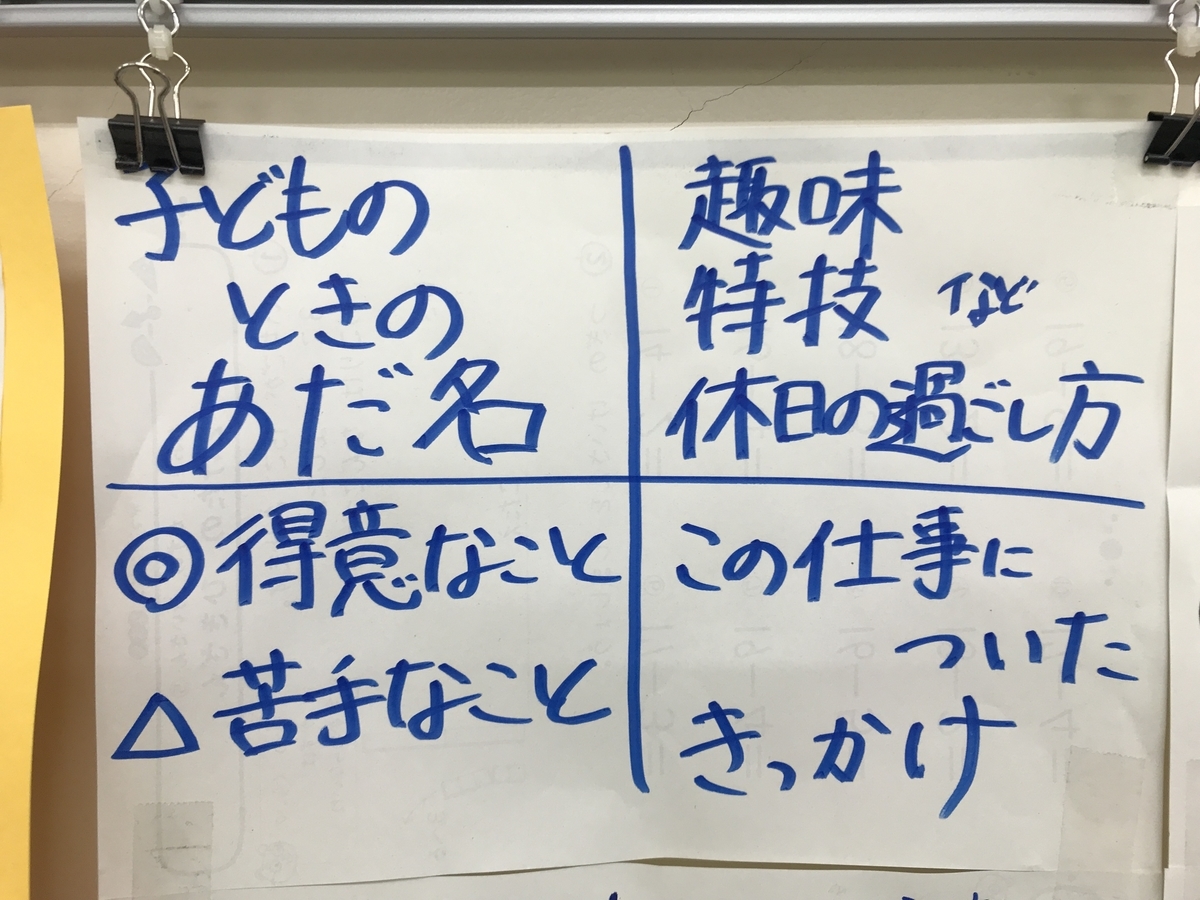 子どもの
ときの
あだ名
趣味
特技 など
休日の過ごし方
◎得意なこと
△苦手なこと
この仕事に
ついた
きっかけ